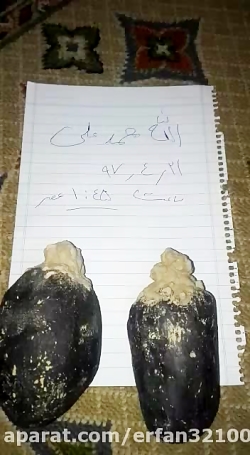 الله محمد علی
۹۷٫۴٫۲۱
ساعت ۱۰:۴۵ عصر
aparat.com/erfan32100